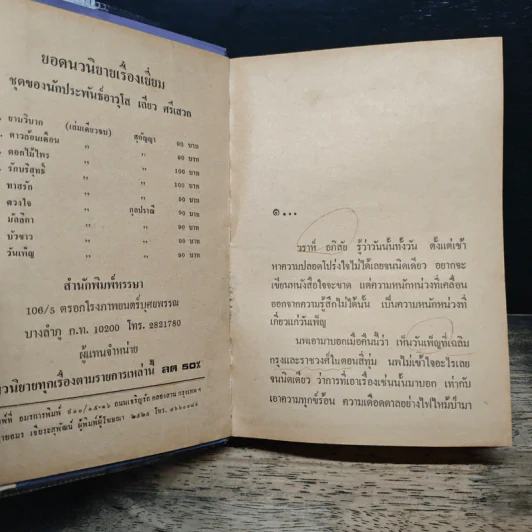 ยอดนวนิยายเรื่องเยี่ยม
ชุดของนักประพันธ์อาวุโส เลียว ศรีเสวก
ยานวิบาก (เล่มเดียวจบ) สุธัญญา ๙๐ บาท
ดาวล้อมเดือน ,, ,, ๙๐ บาท
ดอกไม้ไพร ,, ,, ๙๐ บาท
รักบริสุทธิ์ ,, ,, ๑๐๐ บาท
ทาสรัก ,, ,, ๑๐๐ บาท
ดวงใจ ,, กุลปราณี ๙๐ บาท
มัลลิกา ,, ,, ๙๐ บาท
บัวขาว ,, ,, ๙๐ บาท
วันเพ็ญ ,, ,, ๙๐ บาท
สำนักพิมพ์หรรษา
106/5 ตรอกโรงภาพยนตร์บุศยพรรณ
บางลำภู ก.ท. 10200 โทร. 2821780
ผู้แทนจำหน่าย
นวนิยายทุกเรื่องตามรายการเหล่านี้ ลด 50%
อมรการพิมพ์ ถนนเจริญรัถ คลองสาน กรุงเทพฯ
ผู้พิมพ์ผู้โฆษณา ๒๕๒๕ โทร.
๑...
วราห์ อภิลัย รู้ว่าวันนั้นทั้งวัน ตั้งแต่เช้า
หาความปลอดโปร่งใจไม่ได้เลยจนนิดเดียว อยากจะ
เขียนหนังสือใจจะขาด แต่ความหนักหน่วงที่เคลื่อน
ออกจากความรู้สึกไม่ได้นั้น เป็นความหนักหน่วงที่
เกี่ยวแก่วันเพ็ญ
นพเอามาบอกเมื่อคืนนี้ว่า เห็นวันเพ็ญที่เฉลิม
กรุงและราชวงศ์ในตอนสี่ทุ่ม นพไม่เข้าใจอะไรเลย
จนนิดเดียว ว่าการที่เอาเรื่องเช่นนั้นมาบอก เท่ากับ
เอาความทุกข์ร้อน ความเดือดดาลอย่างไฟไหม้ป่ามา